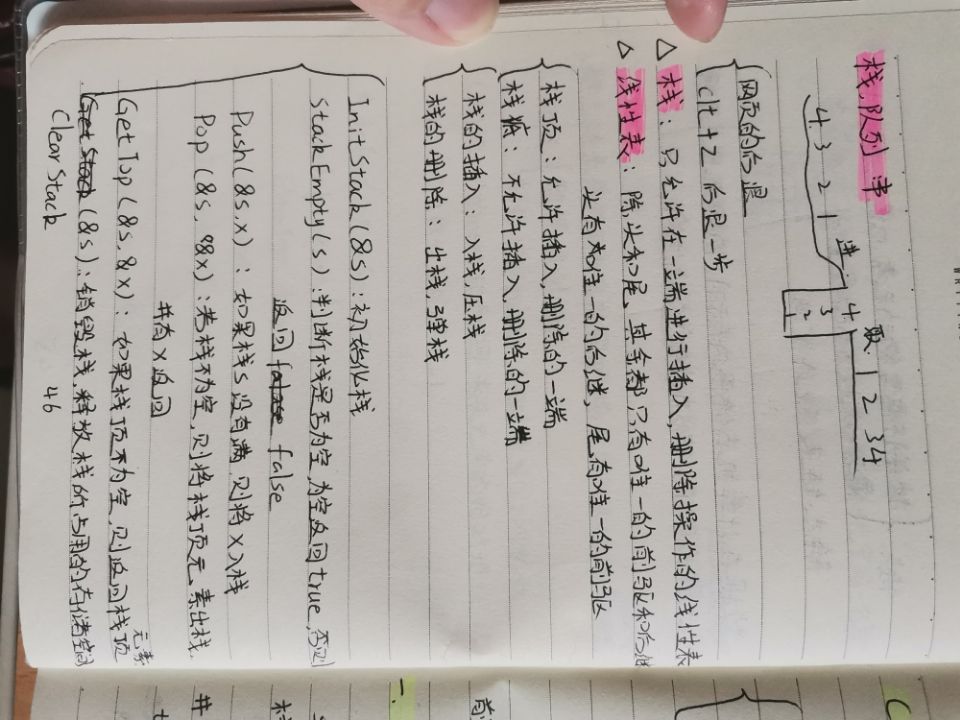 栈,队列 串
进 取.1 2 3 4
4 3 2 1
4
3
2
1
网页的后退
clt+z 后退一步
△ 栈：只允许在一端进行插入,删除操作的线性表
△ 线性表：除头和尾,其余都只有唯一的前驱和后继
头有唯一的后继,尾有唯一的前驱
栈顶：允许插入,删除的一端
栈底：不允许插入,删除的一端
栈的插入：入栈,压栈
栈的删除：出栈,弹栈
InitStack(&s):初始化栈
StackEmpty(s):判断栈是否为空,为空返回true,否则
返回 false
Push(&s,x)：如果栈s没有满则将x入栈
Pop(&s,&x)：若栈不为空,则将栈顶元素出栈.
并有x返回
GetTop(&s,&x)：如果栈顶不为空,则返回栈顶元素
(&s):销毁栈,释放栈所占用的存储空间
ClearStack
46